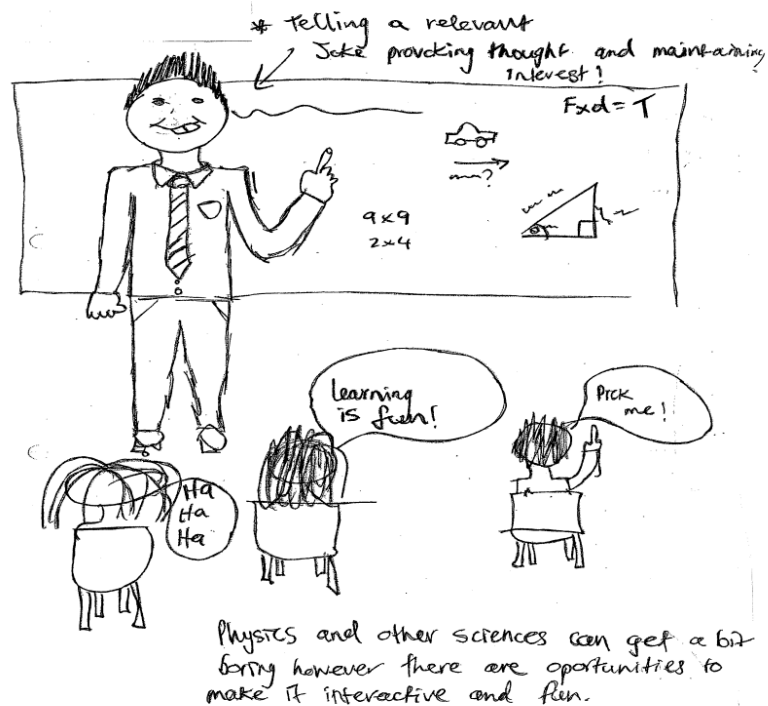 * Telling a relevant
Joke provoking thought and maintaining
interest!
Fxd = T
9x9
2x4
learning
is fun!
Pick
me!
Ha
Ha
Ha
Physics and other sciences can get a bit
boring however there are oportunities to
make it interactive and fun.